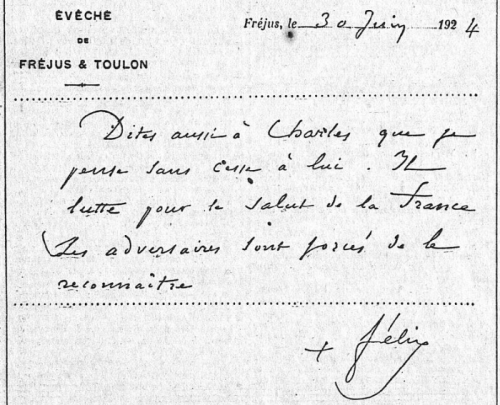 ÉVÊCHÉ
DE
FRÉJUS & TOULON
Fréjus, le 30 Juin 1924
Dites aussi à Charles que je
pense sans cesse à lui. Il
lutte pour le salut de la France
Ses adversaires sont forcés de le
reconnaître
+ Félix